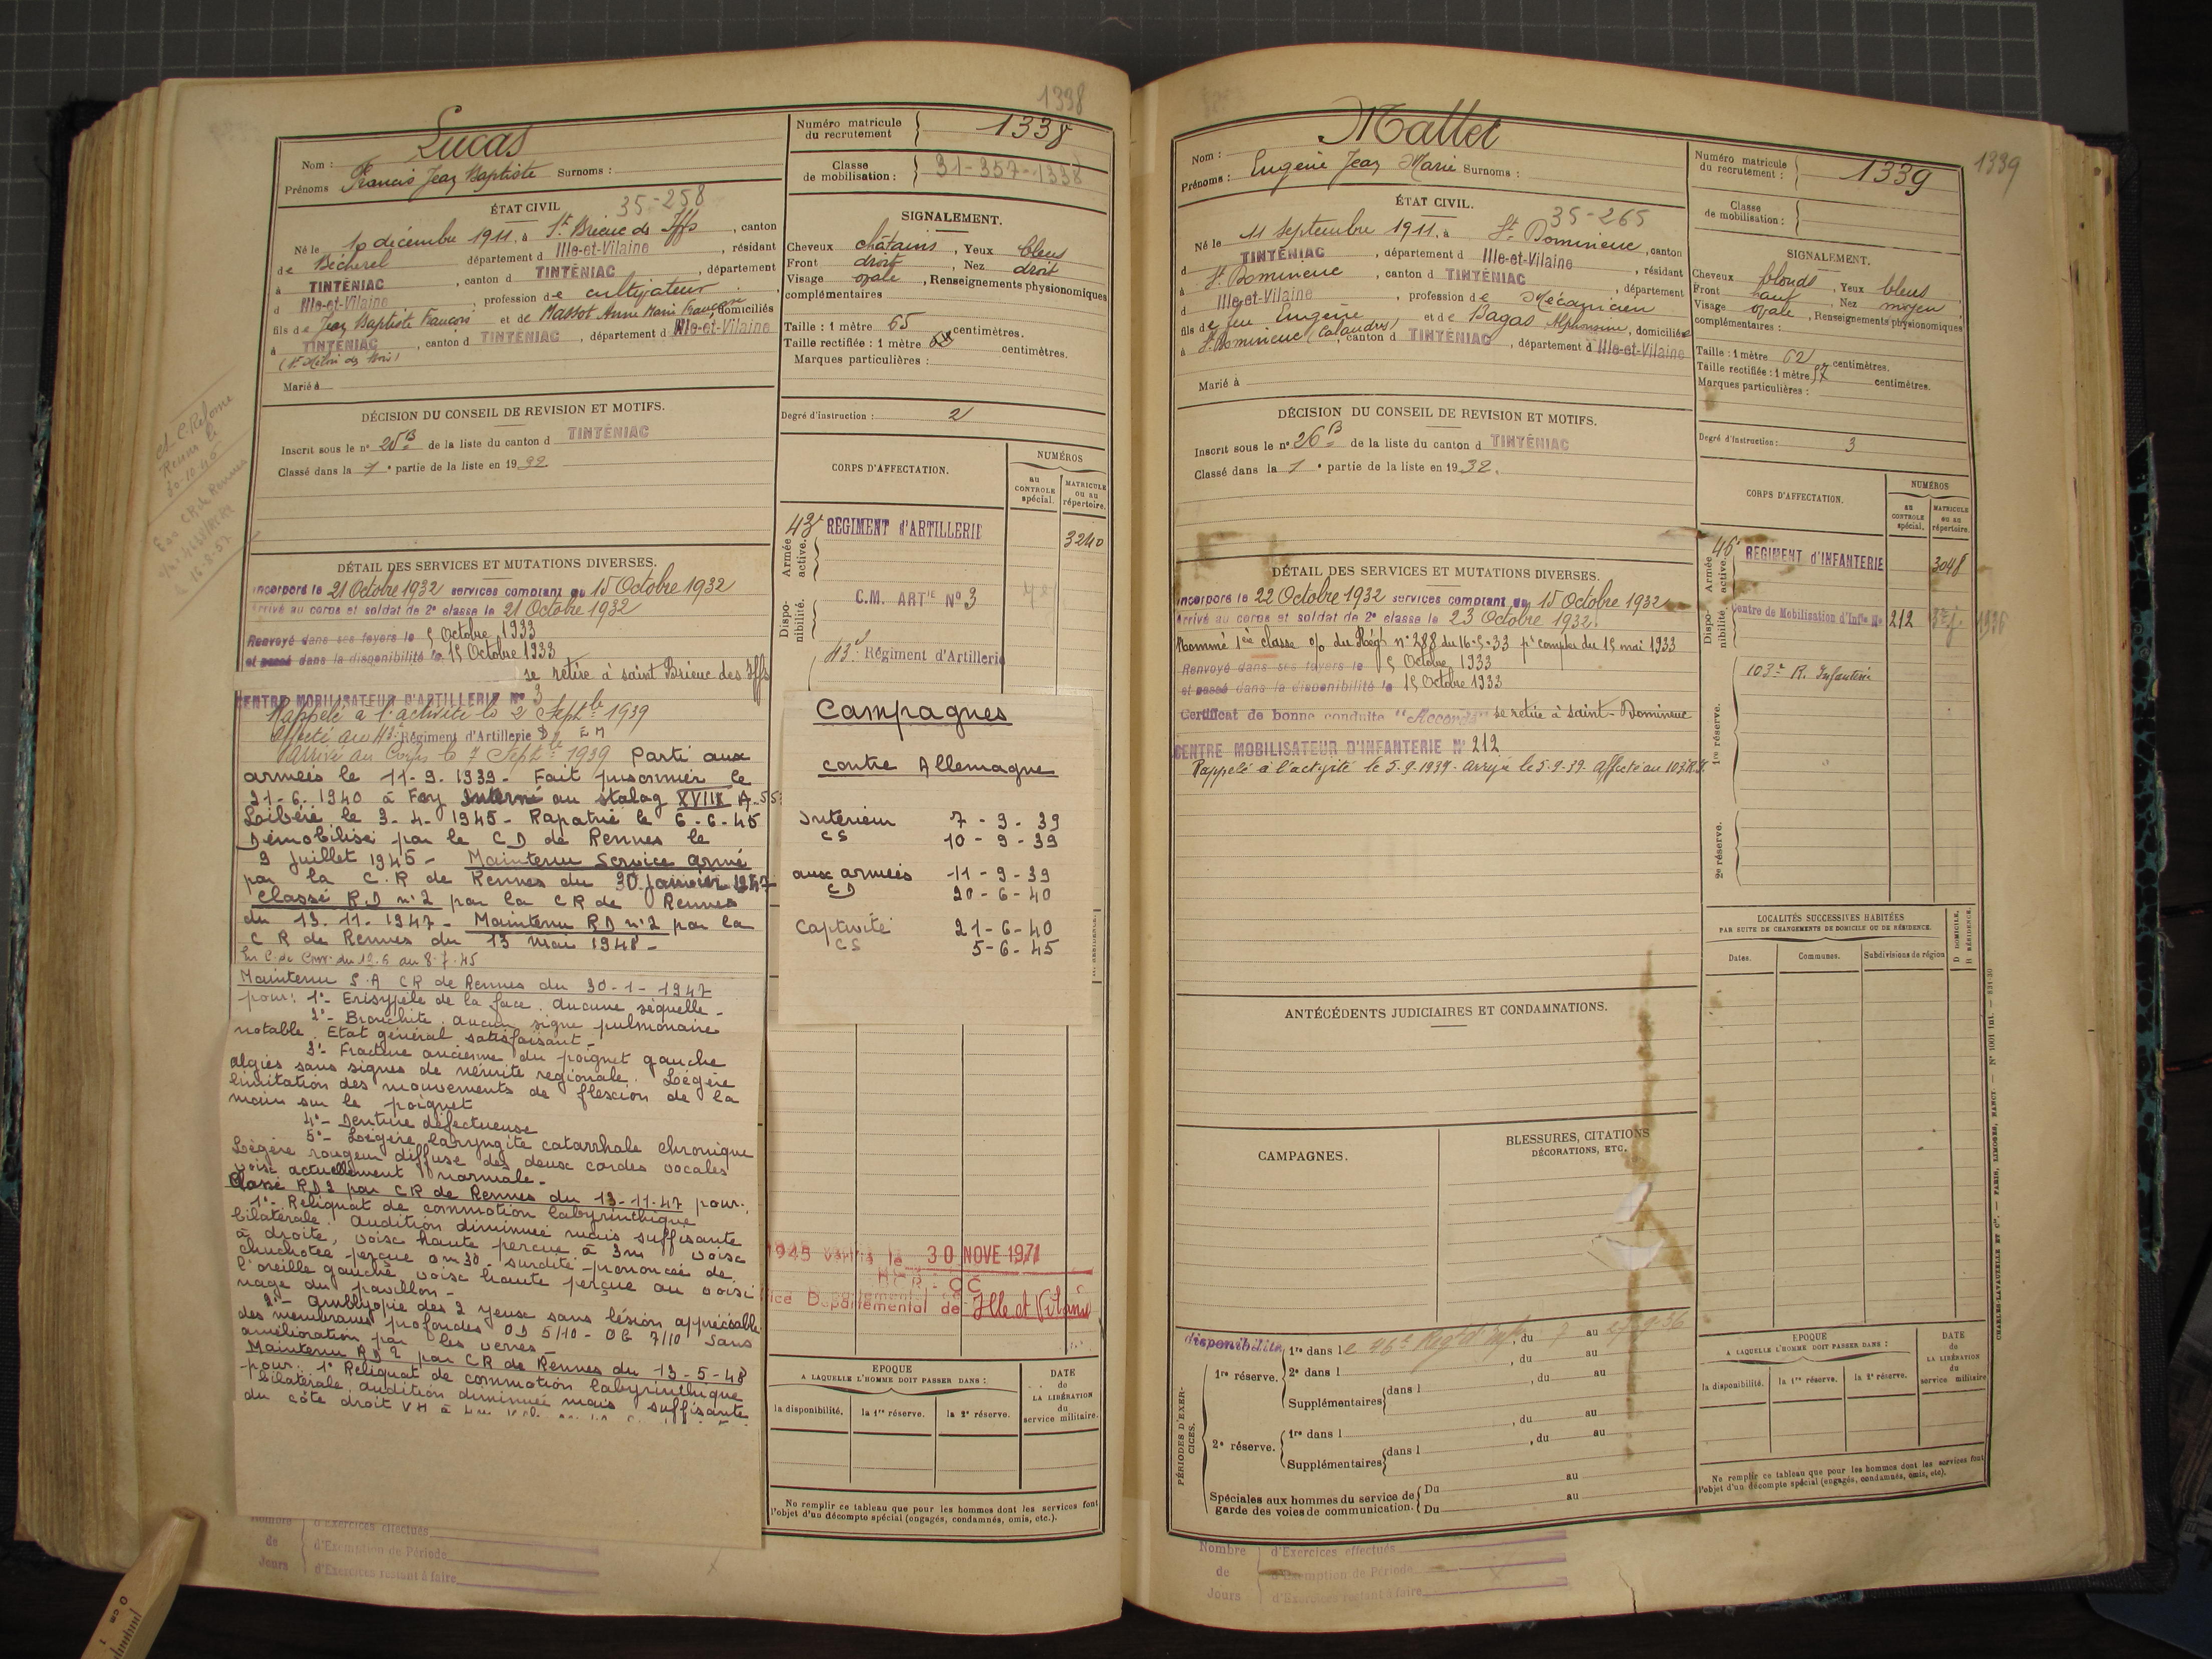 1338
Nom : Lucas
Prénoms Francis Jean Baptiste Surnoms :
Numéro matricule du recrutement 1338
Classe de mobilisation : 31-357-1338
ÉTAT CIVIL 35-258
Né le 10 décembre 1911, à St Brieuc des Iffs, canton
de Bécherel département d Ille-et-Vilaine, résidant
à TINTÉNIAC, canton d TINTÉNIAC, département
d Ille-et-Vilaine, profession de cultivateur
fils de Jean Baptiste François et de Massot Anne Marie Françoise, domiciliés
à TINTÉNIAC, canton d TINTÉNIAC, département d Ille-et-Vilaine
Marié à
SIGNALEMENT.
Cheveux châtains, Yeux bleus
Front droit, Nez droit
Visage ovale, Renseignements physionomiques
complémentaires
Taille : 1 mètre 65 centimètres.
Taille rectifiée : 1 mètre 68 centimètres.
Marques particulières :
Degré d'instruction : 2
DÉCISION DU CONSEIL DE REVISION ET MOTIFS.
Inscrit sous le n° 25B de la liste du canton d TINTÉNIAC
Classé dans la 1e partie de la liste en 19
CORPS D'AFFECTATION.
NUMÉROS
au CONTROLE spécial.
MATRICULE ou au répertoire.
Armée active.
43e RÉGIMENT d'ARTILLERIE
3240
Disponibilité.
C.M. ARTIE N° 3
43e Régiment d'Artillerie
DÉTAIL DES SERVICES ET MUTATIONS DIVERSES.
Incorporé le 21 Octobre 1932 services comptant du 15 Octobre 1932
Arrivé au corps et soldat de 2e classe le 21 Octobre 1932
Renvoyé dans ses foyers le 5 Octobre 1933
et passé dans la disponibilité le 15 Octobre 1933
se retire à saint Brieuc des Iffs
CENTRE MOBILISATEUR D'ARTILLERIE N° 3
Rappelé à l'activité le 2 Septbre 1939
Affecté au 43e Régiment d'Artillerie D EM
Arrivé au Corps le 7 Septbre 1939 Parti aux
armées le 11-9-1939 - Fait prisonnier le
21-6-1940 à Foy Interné au stalag XVIII A
Libéré le 3-4-1945 - Rapatrié le 6-6-45
Démobilisé par le CD de Rennes le
9 Juillet 1945 - Maintenu Service armé
par la C.R de Rennes du 30 Janvier 1947
Classé R.D n°2 par la CR de Rennes
du 13-11-1947 - Maintenu RD n°2 par la
C R de Rennes du 13 Mai 1948 -
Maintenu S.A CR de Rennes du 30-1-1947
pour : 1°- Erisypèle de la face. Aucune séquelle -
2°- Bronchite. Aucun signe pulmonaire
notable. Etat général satisfaisant -
3°- Fracture ancienne du poignet gauche
algies sans signes de névrite régionale. Légère
limitation des mouvements de flexion de la
main sur le poignet
4°- Denture défectueuse
5°- Légère laryngite catarrhale chronique
Légère rougeur diffuse des deux cordes vocales
voix actuellement normale -
Classé RD2 par CR de Rennes du 13-11-47 pour :
1°- Reliquat de commotion labyrinthique
bilatérale. Audition diminuée mais suffisante
à droite, voix haute perçue à 3m voix
chuchotée perçue 0m30 - surdité prononcée de
l'oreille gauche voix haute perçue au voisi
nage du pavillon -
2°- Amblyopie des 2 yeux sans lésion appréciable
des membranes profondes OD 5/10 - OG 7/10 Sans
amélioration par les verres -
Maintenu RD 2 par CR de Rennes du 13-5-48
pour : 1° Reliquat de commotion labyrinthique
bilatérale, audition diminuée mais suffisante
du côté droit VH à 4m
Campagnes
contre Allemagne
Intérieur 7-9-39
CS 10-9-39
aux armées 11-9-39
CD 20-6-40
Captivité 21-6-40
CS 5-6-45
30 NOVE 1971
Départemental de Ille et Vilaine
EPOQUE
A LAQUELLE L'HOMME DOIT PASSER DANS :
la disponibilité. la 1re réserve. la 2e réserve.
DATE de LA LIBÉRATION du service militaire.
Ne remplir ce tableau que pour les hommes dont les services font
l'objet d'un décompte spécial (engagés, condamnés, omis, etc.).
Nombre de Jours
d'Exercices effectués
d'Exemption de Période
d'Exercices restant à faire
1339
Nom : Mallet
Prénoms : Eugène Jean Marie Surnoms :
Numéro matricule du recrutement : 1339
Classe de mobilisation :
ÉTAT CIVIL. 35-265
Né le 11 Septembre 1911, à St Domineuc, canton
d TINTÉNIAC, département d Ille-et-Vilaine, résidant
à St Domineuc, canton d TINTÉNIAC, département
d Ille-et-Vilaine, profession de Mécanicien
fils de feu Eugène et de Dagas Alphonsine, domiciliée
à St Domineuc, canton d TINTÉNIAC, département d Ille-et-Vilaine
Marié à
SIGNALEMENT.
Cheveux blonds, Yeux bleus
Front haut, Nez moyen
Visage ovale, Renseignements physionomiques
complémentaires :
Taille : 1 mètre 62 centimètres.
Taille rectifiée : 1 mètre centimètres.
Marques particulières :
Degré d'instruction : 3
DÉCISION DU CONSEIL DE REVISION ET MOTIFS.
Inscrit sous le n° 26B de la liste du canton d TINTÉNIAC
Classé dans la 1e partie de la liste en 1932.
CORPS D'AFFECTATION.
NUMÉROS
au CONTROLE spécial.
MATRICULE ou au répertoire.
Armée active.
46e RÉGIMENT d'INFANTERIE 3048
Disponibilité.
Centre de Mobilisation d'Infie N° 212
1re réserve.
103e R. Infanterie
2e réserve.
DÉTAIL DES SERVICES ET MUTATIONS DIVERSES.
Incorporé le 22 Octobre 1932 services comptant du 15 Octobre 1932
Arrivé au corps et soldat de 2e classe le 23 Octobre 1932
Nommé 1ère classe o/ du Régt n° 288 du 16-5-33 pr compter du 15 mai 1933
Renvoyé dans ses foyers le 5 Octobre 1933
et passé dans la disponibilité le 15 Octobre 1933
Certificat de bonne conduite "Accordé" se retire à saint-Domineuc
CENTRE MOBILISATEUR D'INFANTERIE N° 212
Rappelé à l'activité le 5-9-1939. Arrivé le 5-9-39. Affecté au 103 R.I.
LOCALITÉS SUCCESSIVES HABITÉES
PAR SUITE DE CHANGEMENTS DE DOMICILE OU DE RÉSIDENCE.
Dates. Communes. Subdivisions de région
D DOMICILE. R RÉSIDENCE.
ANTÉCÉDENTS JUDICIAIRES ET CONDAMNATIONS.
CAMPAGNES.
BLESSURES, CITATIONS
DÉCORATIONS, ETC.
PÉRIODES D'EXERCICES.
disponibilité
1re réserve.
1re dans le 46e Régt d'Inf, du au
2e dans l , du au
Supplémentaires dans l , du au
2e réserve.
1re dans l , du au
Supplémentaires dans l , du au
Spéciales aux hommes du service de
garde des voies de communication.
Du au
Du au
EPOQUE
A LAQUELLE L'HOMME DOIT PASSER DANS :
la disponibilité. la 1re réserve. la 2e réserve.
DATE de LA LIBÉRATION du service militaire
Ne remplir ce tableau que pour les hommes dont les services font
l'objet d'un décompte spécial (engagés, condamnés, omis, etc).
CHARLES-LAVAUZELLE ET Cie. — PARIS, LIMOGES, NANCY.
Nombre de Jours
d'Exercices effectués
d'Exemption de Période
d'Exercices restant à faire